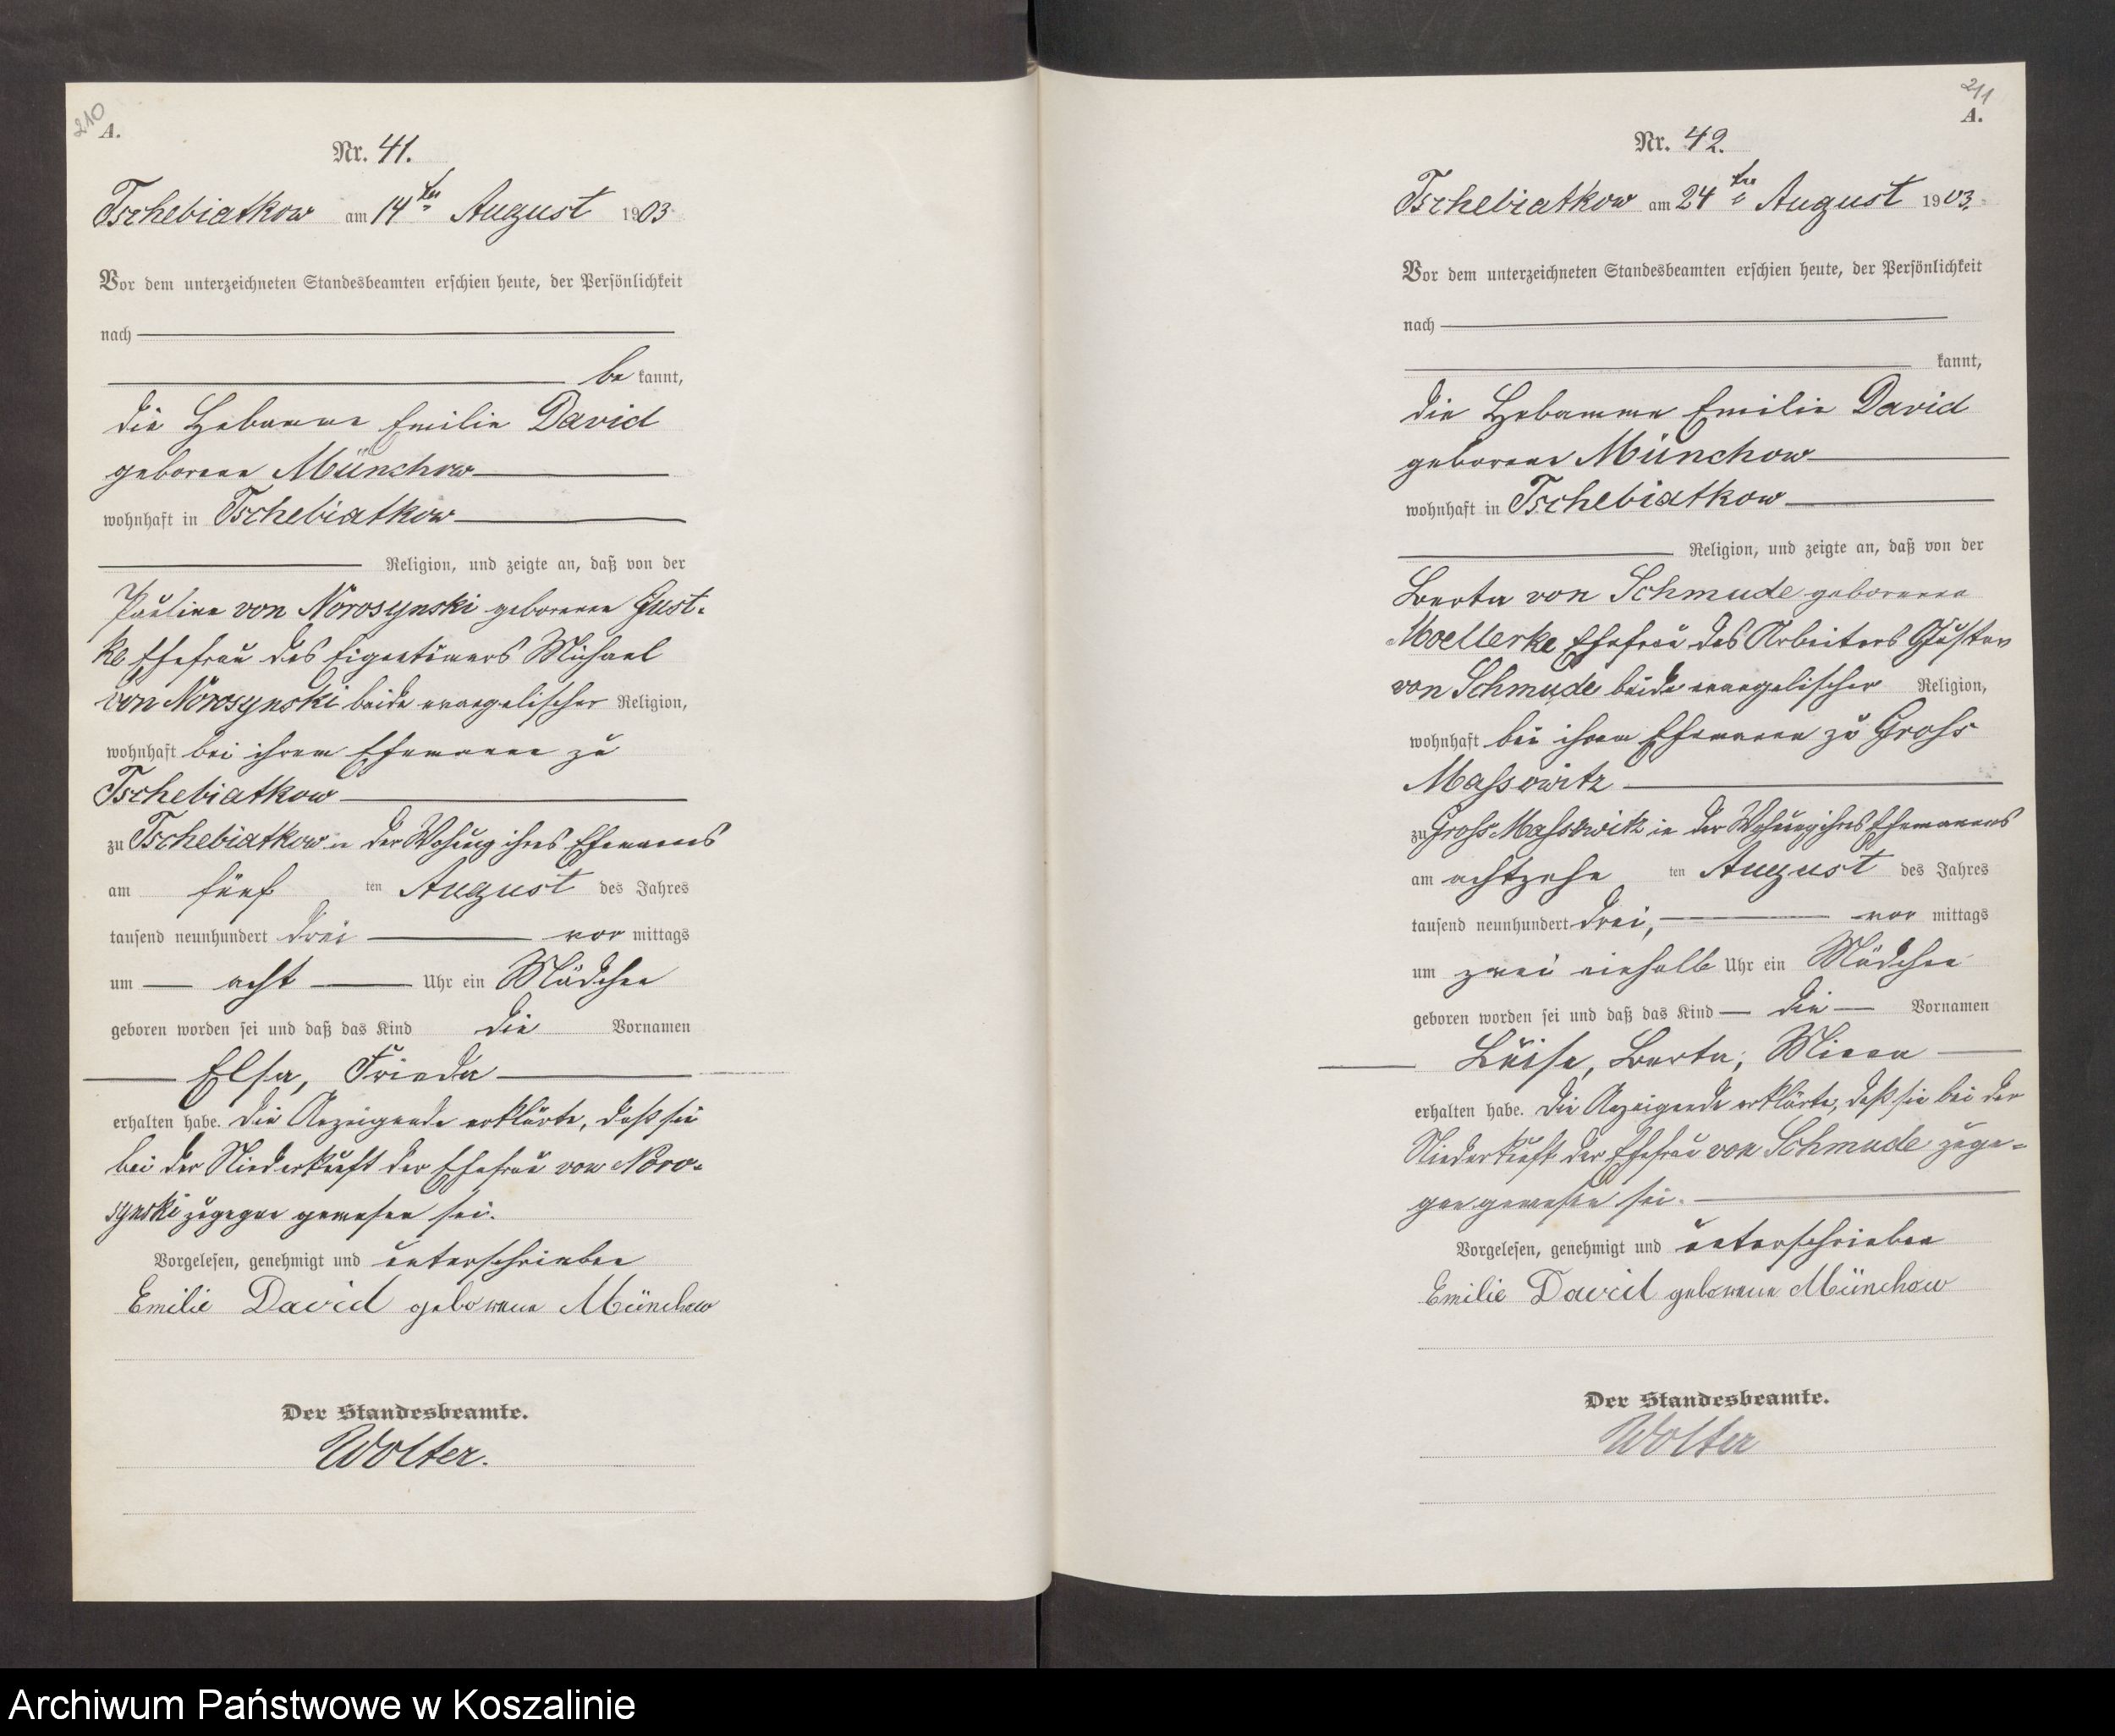 210
A.
Nr. 41.
Tschebiatkow am 14ten August 1903
Vor dem unterzeichneten Standesbeamten erschien heute, der Persönlichkeit
nach
be kannt,
die Hebamme Emilie David
geborene Münchow
wohnhaft in Tschebiatkow
Religion, und zeigte an, daß von der
Pauline von Norosynski geborenen Gust-
ke Ehefrau des Eigentümers Michael
von Norosynski beide evangelischer Religion,
wohnhaft bei ihrem Ehemanne zu
Tschebiatkow
zu Tschebiatkow in der Wohnung ihres Ehemannes
am fünf ten August des Jahres
tausend neunhundert drei vor mittags
um acht Uhr ein Mädchen
geboren worden sei und daß das Kind die Vornamen
Elsa, Frieda
erhalten habe. Die Anzeigende erklärte, daß sie
bei der Niederkunft der Ehefrau von Noro-
synski zugegen gewesen sei.
Vorgelesen, genehmigt und unterschrieben
Emilie David geborene Münchow
Der Standesbeamte.
Wolter.
211
A.
Nr. 42.
Tschebiatkow am 24ten August 1903.
Vor dem unterzeichneten Standesbeamten erschien heute, der Persönlichkeit
nach
kannt,
die Hebamme Emilie David
geborene Münchow
wohnhaft in Tschebiatkow
Religion, und zeigte an, daß von der
Berta von Schmude geborenen
Moellerke Ehefrau des Arbeiters Gustav
von Schmude beide evangelischer Religion,
wohnhaft bei ihrem Ehemanne zu Gross
Massowitz
zu Gross Massowitz in der Wohnung ihres Ehemannes
am achtzehn ten August des Jahres
tausend neunhundert drei, vor mittags
um zwei einhalb Uhr ein Mädchen
geboren worden sei und daß das Kind die Vornamen
Luise, Berta, Minna
erhalten habe. Die Anzeigende erklärte, daß sie bei der
Niederkunft der Ehefrau von Schmude zuge-
gen gewesen sei.
Vorgelesen, genehmigt und unterschrieben
Emilie David geborene Münchow
Der Standesbeamte.
Wolter
Archiwum Państwowe w Koszalinie